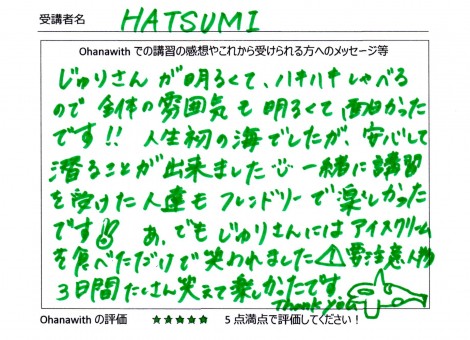 受講者名 HATSUMI
Ohanawith での講習の感想やこれから受けられる方へのメッセージ等
じゅりさんが明るくて、ハキハキしゃべる
ので全体の雰囲気も明るくて、面白かった
です!! 人生初の海でしたが、安心して
潜ることが出来ました 一緒に講習
を受けた人達もフレンドリーで楽しかった
です あ、でもじゅりさんにはアイスクリーム
を食べただけで笑われました⚠要注意人物
3日間たくさん笑えて楽しかたです
Thank you
Ohanawith の評価 ★★★★★ 5点満点で評価してください!